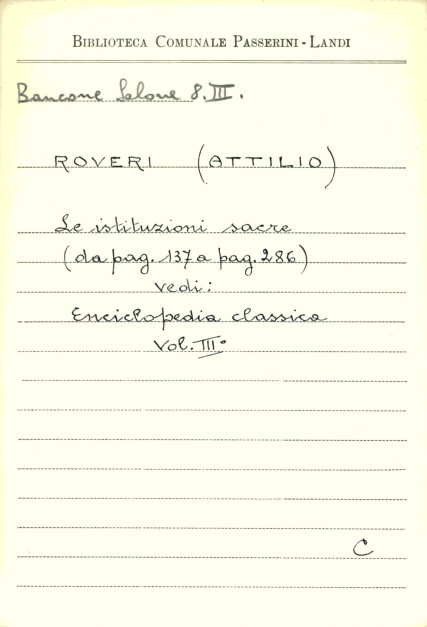 BIBLIOTECA COMUNALE PASSERINI - LANDI
Bancone Salone 8.III.
ROVERI (ATTILIO)
Le istituzioni sacre
(da pag. 137 a pag. 286)
vedi:
Enciclopedia classica
Vol. III°
C